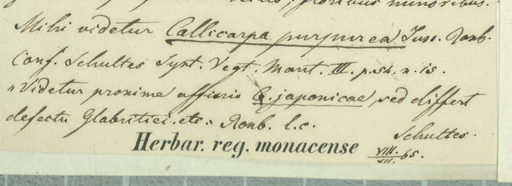 floribus minoribus.
Mihi videtur Callicarpa purpurea Juss. Roxb.
Conf. Schultes Syst. Veget. Mant. III. p. 54. n. 15.
"Videtur proxime affinis C. japonicae, sed differt
defectu glabritiei. etc. Roxb. l. c.
Schultes.
Herbar. reg. monacense
VIII. 65.